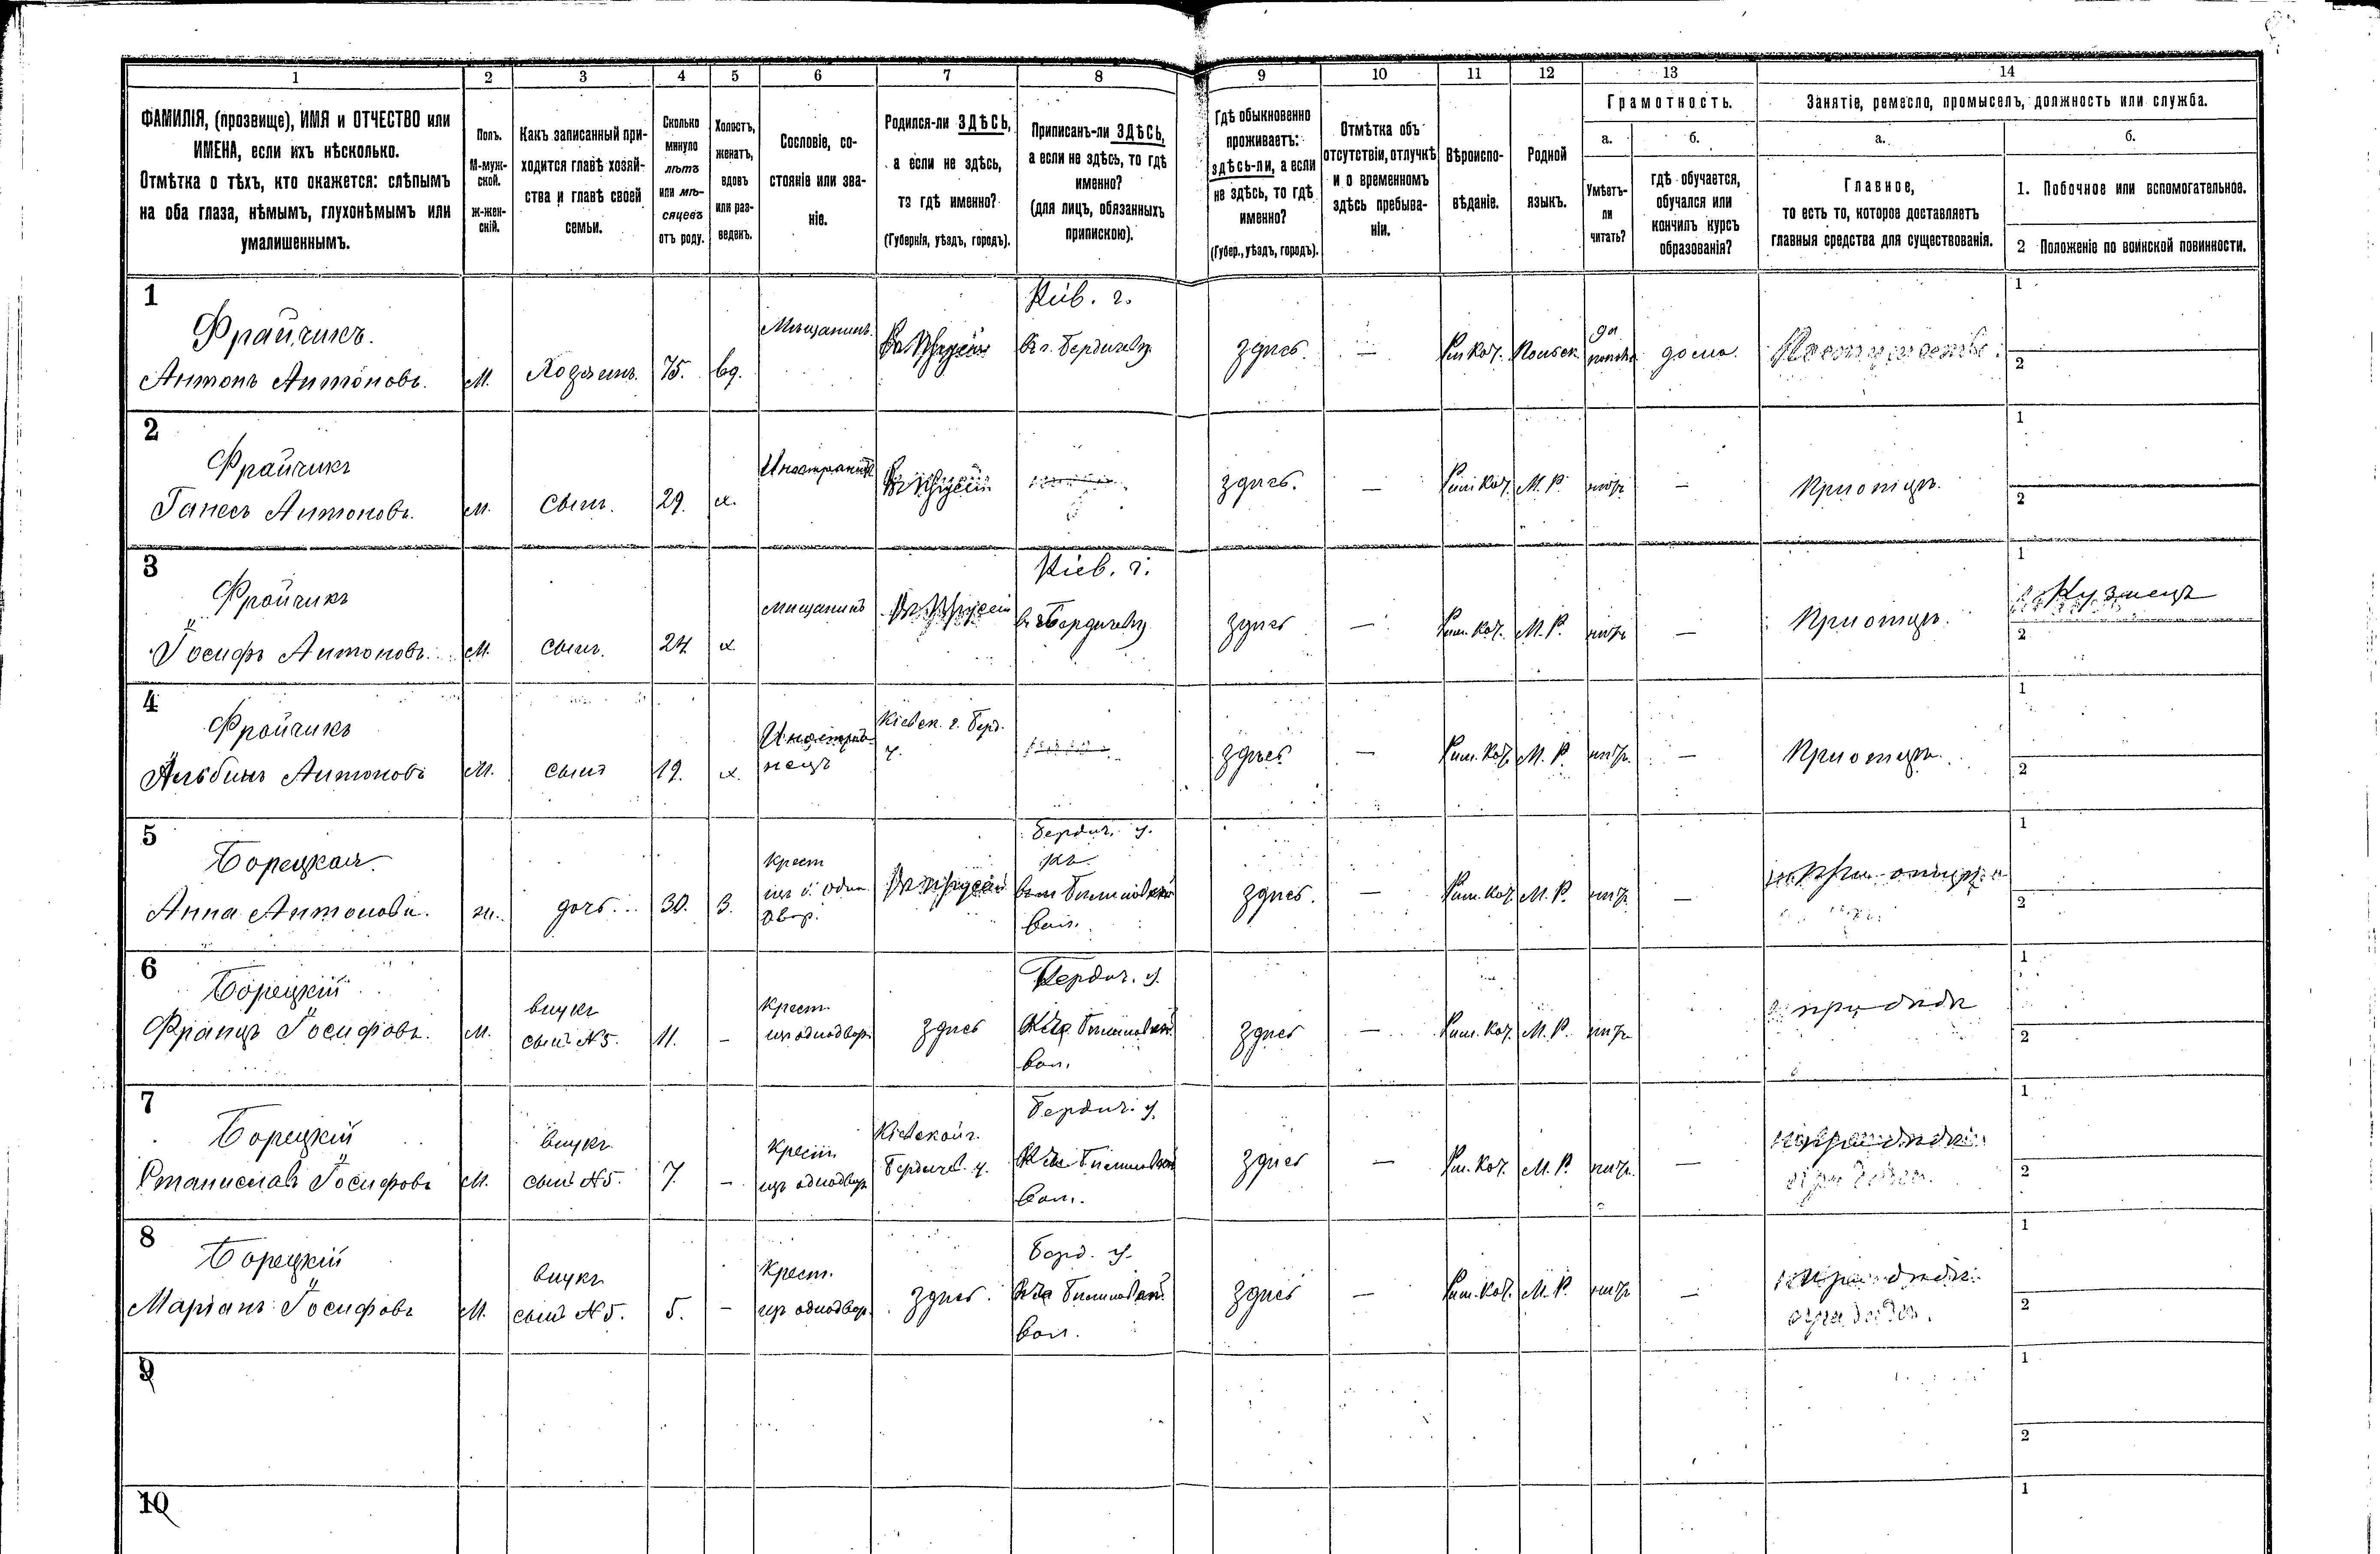 1 2 3 4 5 6 7 8 9 10 11 12 13 14
ФАМИЛІЯ, (прозвище), ИМЯ и ОТЧЕСТВО или
ИМЕНА, если ихъ нѣсколько.
Отмѣтка о тѣхъ, кто окажется: слѣпымъ
на оба глаза, нѣмымъ, глухонѣмымъ или
умалишеннымъ.
Полъ.
М-муж-
ской.
Ж-жен-
скій.
Какъ записанный при-
ходится главѣ хозяй-
ства и главѣ своей
семьи.
Сколько
минуло
лѣтъ
или мѣ-
сяцевъ
отъ роду.
Холостъ,
женатъ,
вдовъ
или раз-
веденъ.
Сословіе, со-
стояніе или зва-
ніе.
Родился-ли ЗДѢСЬ,
а если не здѣсь,
то гдѣ именно?
(Губернія, уѣздъ, городъ).
Приписанъ-ли ЗДѢСЬ,
а если не здѣсь, то гдѣ
именно?
(для лицъ, обязанныхъ
припискою).
Гдѣ обыкновенно
проживаетъ:
здѣсь-ли, а если
не здѣсь, то гдѣ
именно?
(Губер., уѣздъ, городъ).
Отмѣтка объ
отсутствіи, отлучкѣ
и о временномъ
здѣсь пребыва-
ніи.
Вѣроиспо-
вѣданіе.
Родной
языкъ.
Грамотность.
а.
Умѣетъ-
ли
читать?
б.
гдѣ обучается,
обучался или
кончилъ курсъ
образованія?
Занятіе, ремесло, промыселъ, должность или служба.
а.
Главное,
то есть то, которое доставляетъ
главныя средства для существованія.
б.
1. Побочное или вспомогательное.
2 Положеніе по воинской повинности.
1
Фрайчикъ.
Антонъ Антоновъ.
М.
Хозяинъ.
75.
вд.
Мѣщанинъ.
Кіев. г.
въ г. Бердичевѣ
здѣсь.
—
Рим Кат.
Польск.
да
дома.
1
2
2
Фрайчикъ
Ганесъ Антоновъ.
М.
Сынъ.
29.
х.
здѣсь.
—
Рим Кат.
М. Р.
—
При отцѣ.
1
2
3
Фрайчикъ
Іосифъ Антоновъ.
М.
Сынъ.
24
х
мѣщанинъ
Кіев. г.
въ г. Бердичевѣ
здѣсь
—
Рим. Кат.
М. Р.
—
При отцѣ.
1
Кузнецъ
2
4
Фрайчикъ
Альбинъ Антоновъ
М.
сынъ
19.
х.
Иностра-
нецъ
Кіевск. г. Берд.
у.
здѣсь
—
Рим. Кат.
М. Р.
—
При отцѣ.
1
2
5
Борецкая
Анна Антонова.
ж.
дочь.
30.
З.
Крест
изъ одно
двор.
Бердич. у.
вол.
здѣсь.
—
Рим. Кат.
М. Р.
—
1
2
6
Борецкій
Францъ Іосифовъ.
М.
внукъ
сынъ №5.
11.
—
Крест.
изъ однодвор.
здѣсь
Бердич. у.
вол.
здѣсь
—
Рим. Кат.
М. Р.
при дѣдѣ
1
2
7
Борецкій
Станиславъ Іосифовъ
М.
внукъ
сынъ №5.
7.
—
Крест.
изъ однодвор
Кіевской г.
Бердичев. у.
Бердич. у.
вол.
здѣсь
—
Рим. Кат.
М. Р.
—
1
2
8
Борецкій
Маріанъ Іосифовъ
М.
внукъ
сынъ №5.
5.
—
Крест.
изъ однодвор.
здѣсь.
Берд. у.
вол.
здѣсь
—
Рим. Кат.
М. Р.
—
1
2
9
1
2
10
1